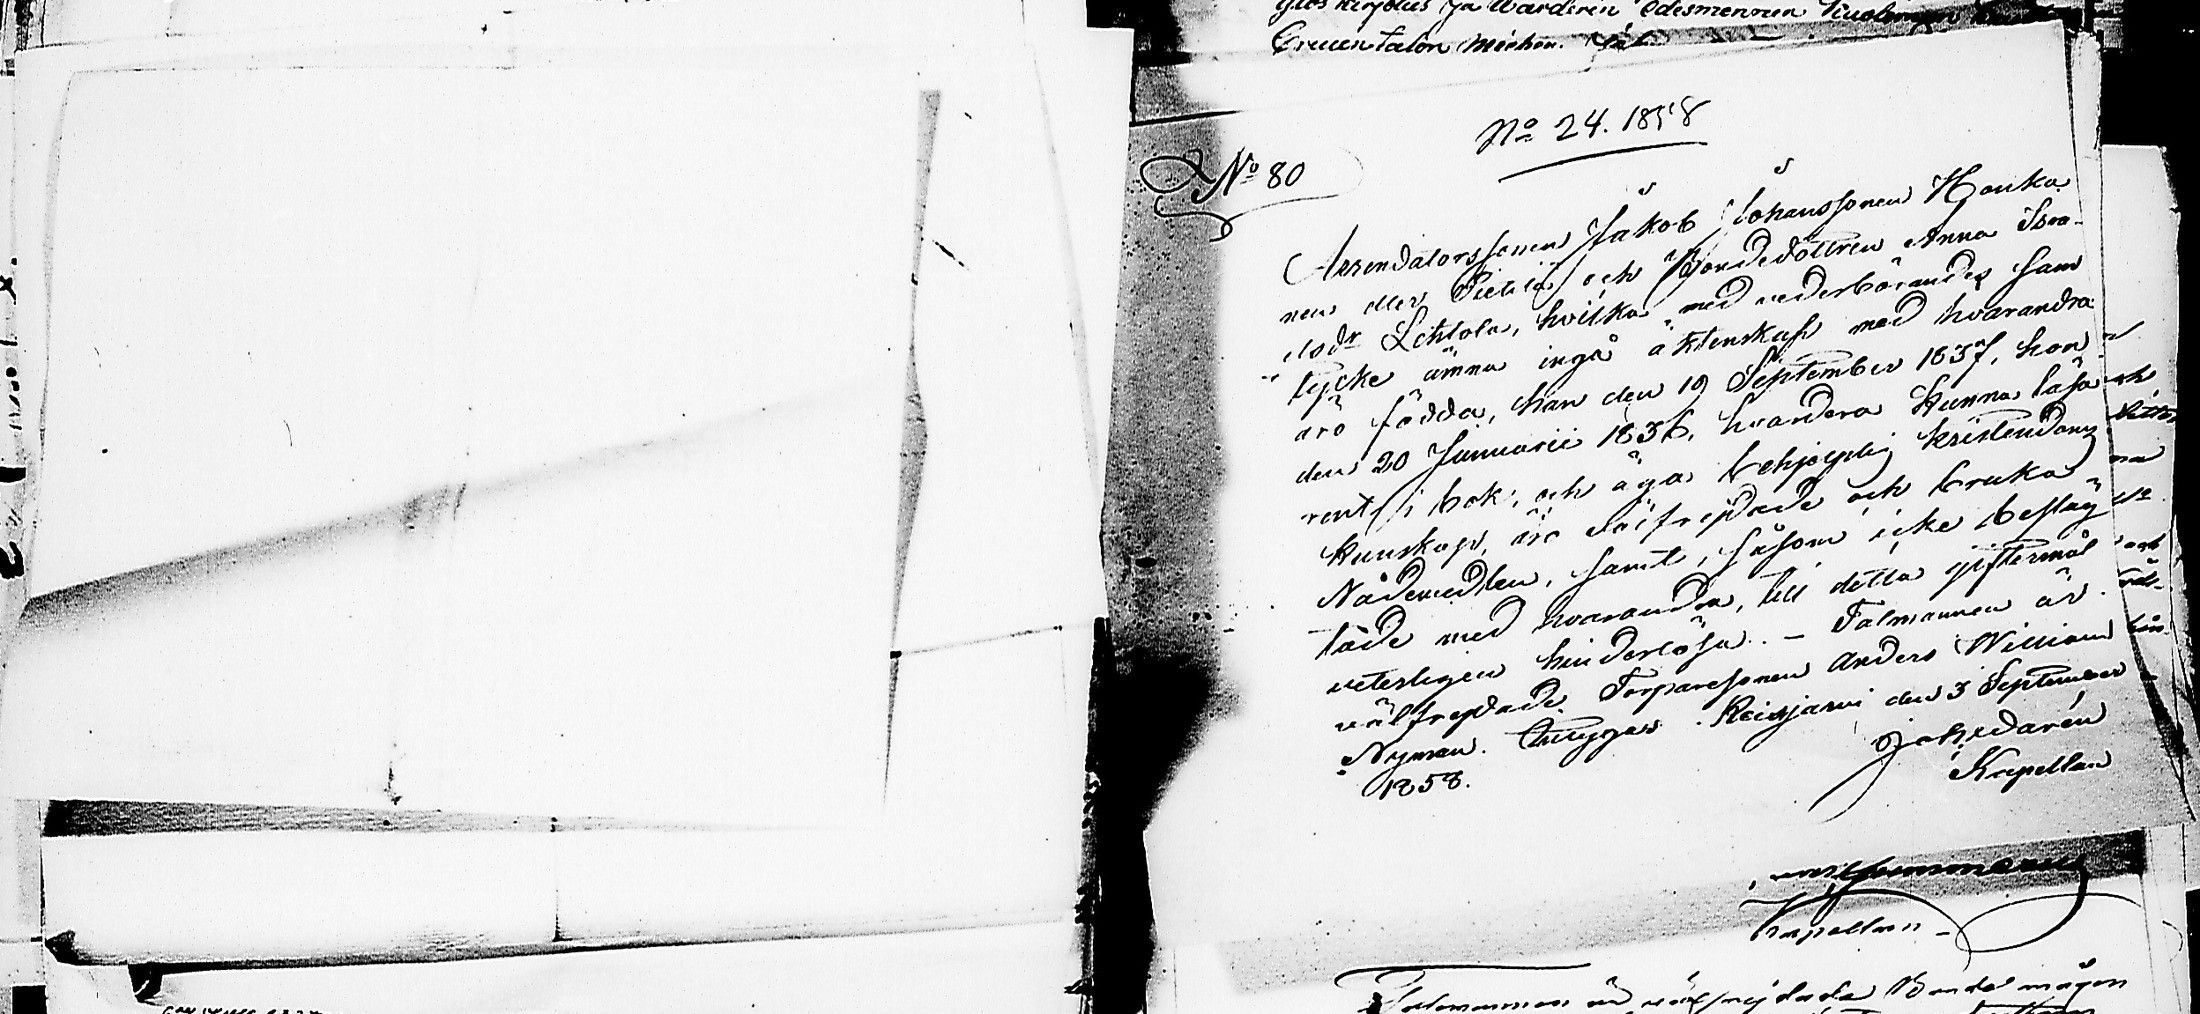 ja Wärderin Edesmennen
Cruuntalon
No 24. 1858
No 80
Arrendatorssonen Jakob Johanssonen Honka
nen eller Pietilä och Bondedottren Anna Isra-
elsdr Lehtola, hvilka med vederbörandes sam
tycke ämna ingå äktenskap med hvarandra
äro födda, han den 19 September 1837, hon
den 20 Januarii 1836, hvardera kunna läsa
rent i bok, och äga behjelplig kristendoms
kunskap, äro väl frejdade och bruka
Nådemedlen, samt, såsom icke beslägt
tade med hvarandra, till detta giftermål
veterligen hinderlösa. – Talmannen är
välfrejdade Torparesonen Anders William
Nyman. Reisjärvi den 3 September
1858.
Kapellan
Kapellan
Talmannen är välfrejdade Bonde mågen